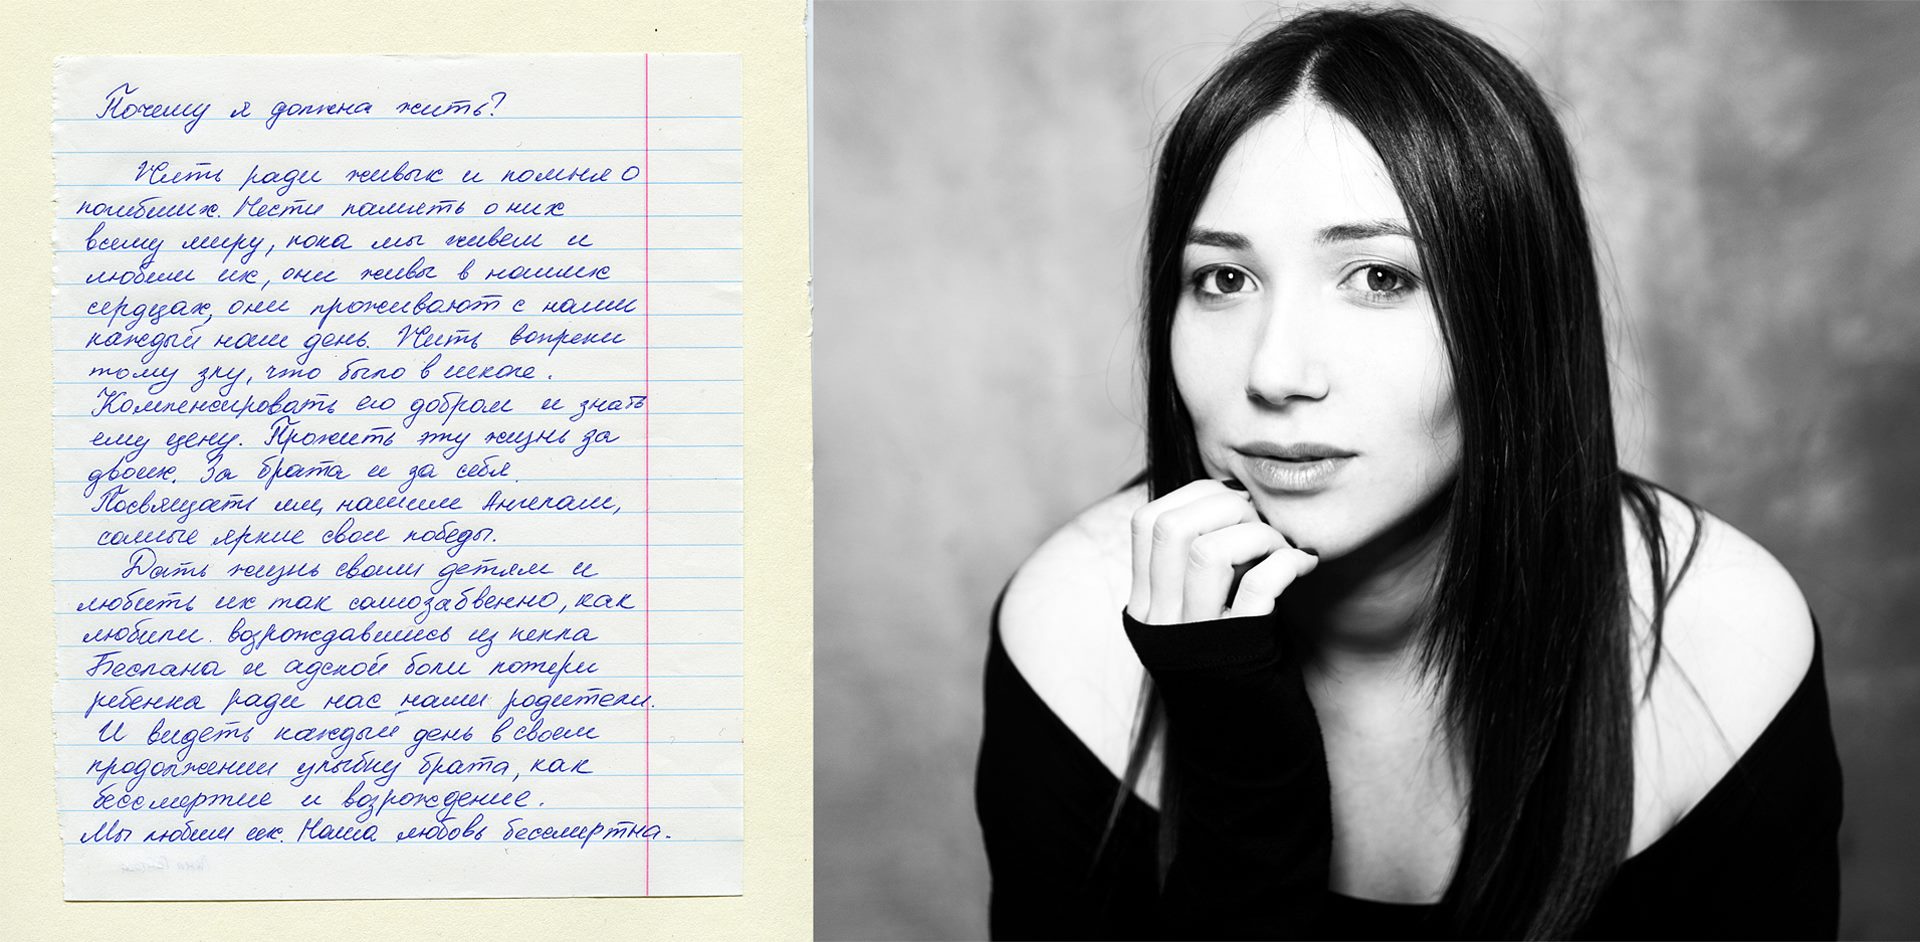 Почему я должна жить?
Жить ради живых и помня о
погибших. Нести память о них
всему миру, пока мы живем и
любим их, они живы в наших
сердцах, они проживают с нами
каждый наш день. Жить вопреки
тому злу, что было в школе.
Компенсировать его добром и знать
ему цену. Прожить эту жизнь за
двоих. За брата и за себя.
Посвящать им, нашим Ангелам,
самые яркие свои победы.
Дать жизнь своим детям и
любить их так самозабвенно, как
любили. возрождавшись из пекла
Беслана и адской боли потери
ребенка ради нас наши родители.
И видеть каждый день в своем
продолжении улыбку брата, как
бессмертие и возрождение.
Мы любим их. Наша любовь бессмертна.